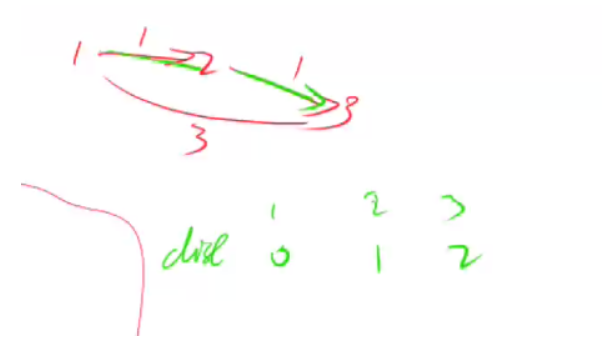 1
1 2 1
3
3
1 2 3
dist 0 1 2